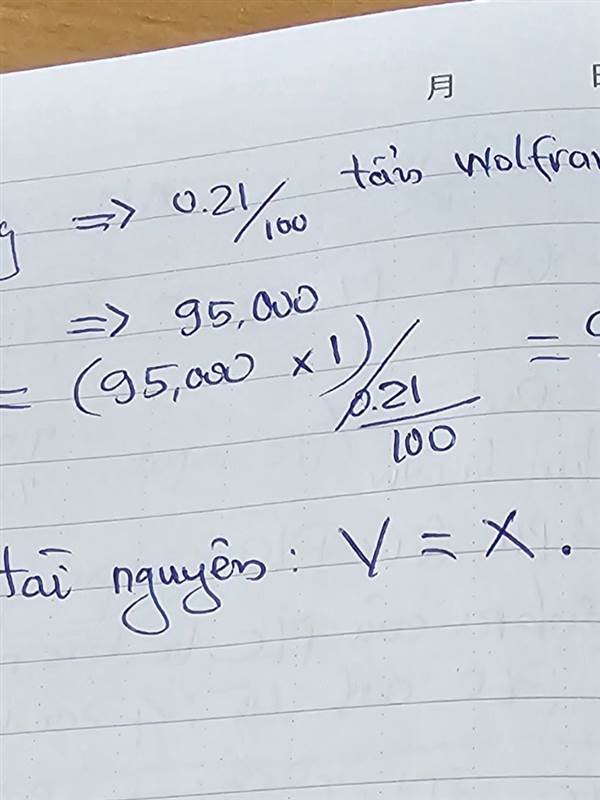 月
=> 0.21/100 tấn Wolfra
=> 95,000
= (95,000 x 1) / 0.21/100 =
tài nguyên: V = X.